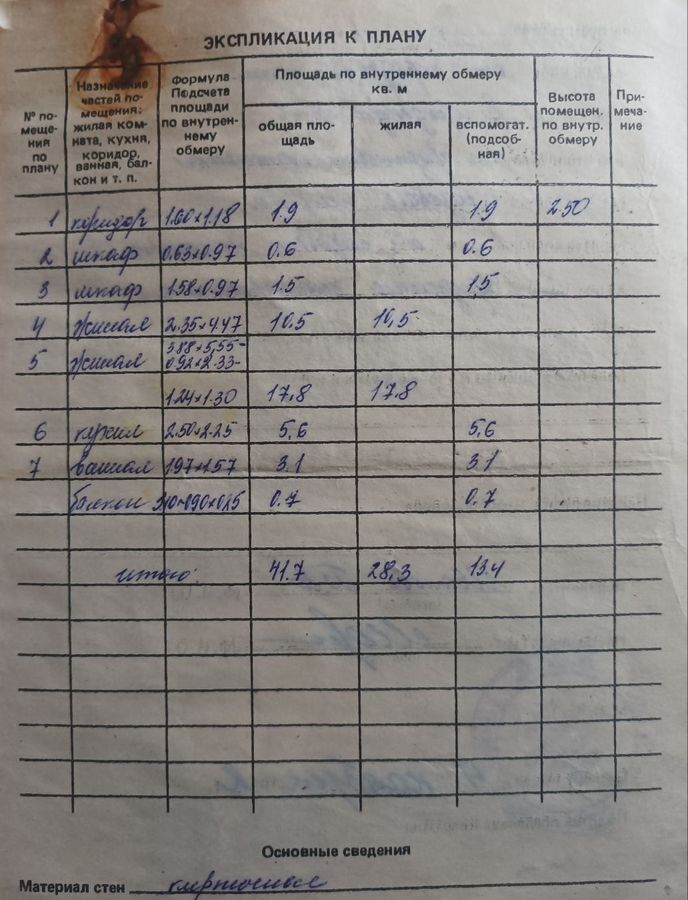 ЭКСПЛИКАЦИЯ К ПЛАНУ
№ помещения по плану | Назначение частей помещения: жилая комната, кухня, коридор, ванная, балкон и т. п. | Формула Подсчета площади по внутреннему обмеру | Площадь по внутреннему обмеру кв. м | Высота помещен. по внутр. обмеру | Примечание
общая площадь | жилая | вспомогат. (подсобная)
1 коридор 1.60×1.18 1.9 1.9 250
2 шкаф 0.63×0.97 0.6 0.6
3 шкаф 1.58×0.97 1.5 1.5
4 жилая 2.35×4.47 10.5 10,5
5 жилая 3.88×5,55-
0.92×2.33-
1.24×1.30 17,8 17.8
6 кухня 2.50×2.25 5,6 5,6
7 ванная 1.97×1.57 3.1 3.1
балкон 0.7 0.7
итого: 41.7 28,3 13.4
Основные сведения
Материал стен кирпичные